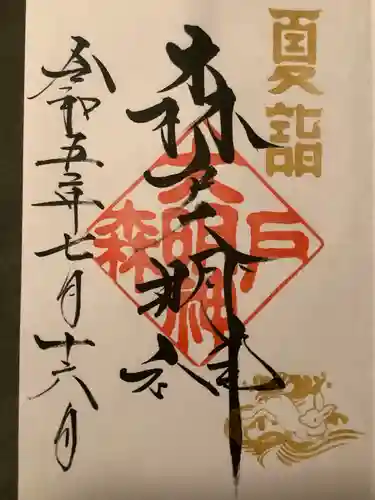 夏詣
森戸大明神
森戸大明神
令和五年七月十六日